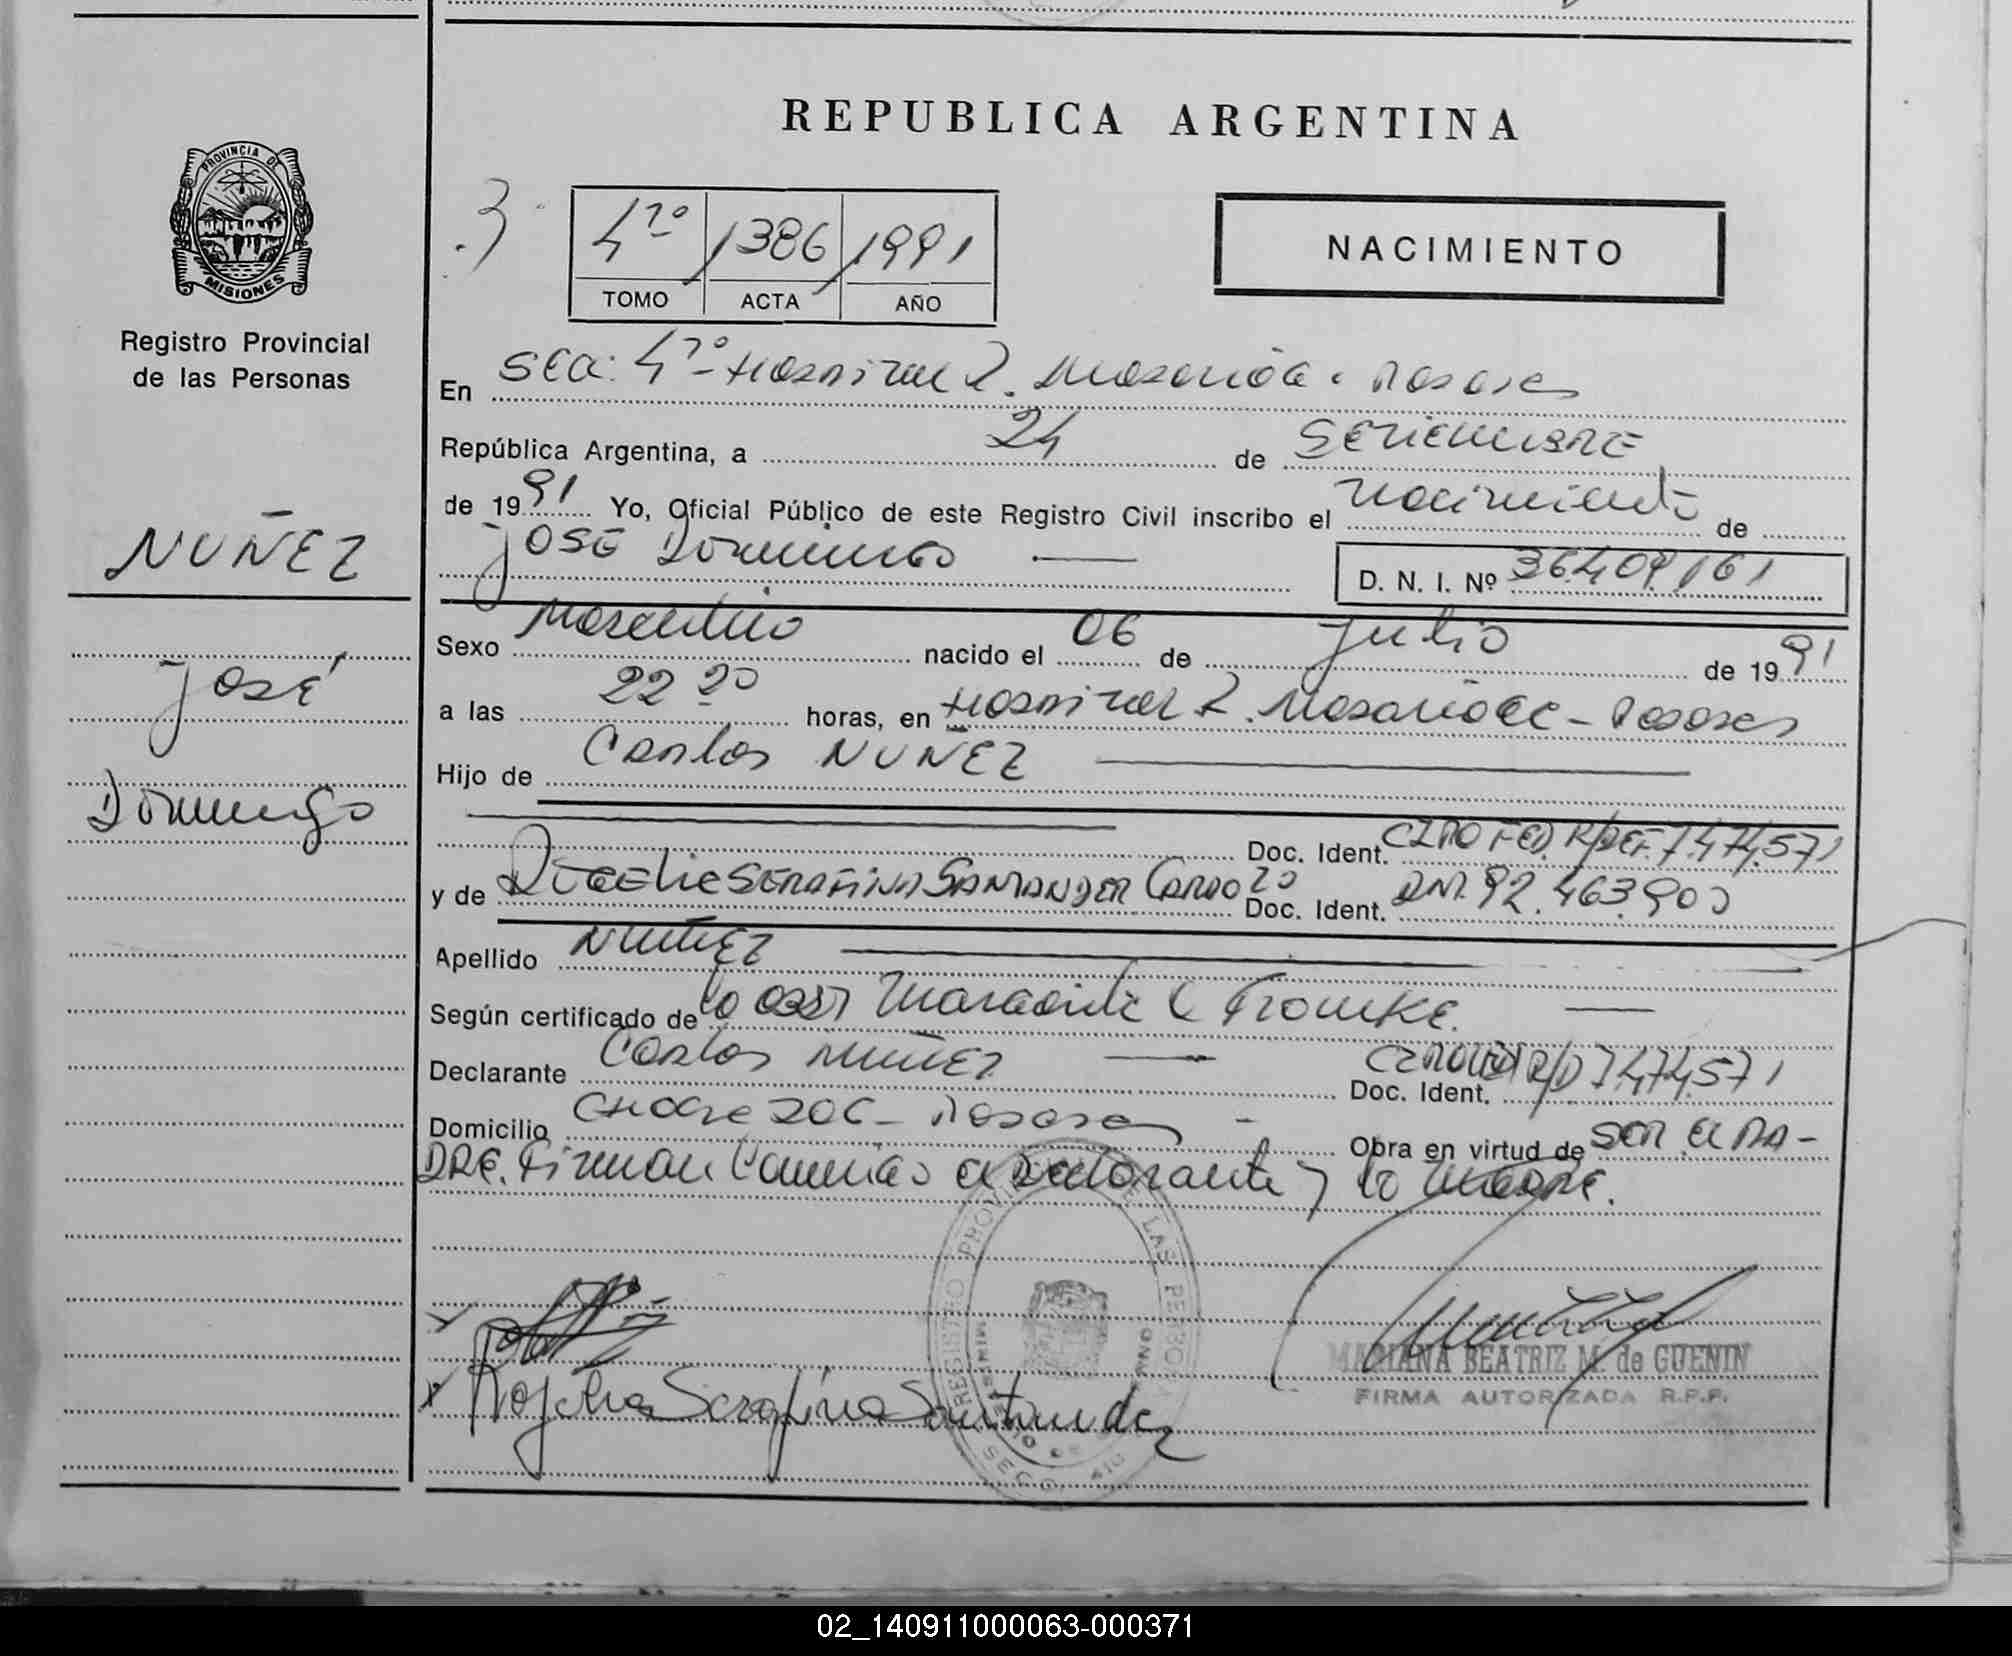 REPUBLICA ARGENTINA
PROVINCIA DE
MISIONES
Registro Provincial
de las Personas
4to 1386 1991
TOMO ACTA AÑO
NACIMIENTO
En Sec: 4to - Hospital R. Madariaga - Posadas
República Argentina, a 24 de SETIEMBRE
de 1991 Yo, Oficial Público de este Registro Civil inscribo el nacimiento de
JOSE DOMINGO
D. N. I. Nº 36.409.161
NUÑEZ
José
Domingo
Sexo Masculino nacido el 06 de Julio de 1991
a las 22 20 horas, en Hospital R. Madariaga - Posadas
Hijo de Carlos NUÑEZ
Doc. Ident. 7.474.571
y de SERAFINA SANTANDER CARDOZO Doc. Ident. DNI. 92.463.900
Apellido NUÑEZ
Según certificado de la
Declarante Carlos NUÑEZ Doc. Ident. 7.474.571
Domicilio 206 - Posadas - Obra en virtud de SER El PA-
DRE. Firman Conmigo el declarante y la MADRE.
Rogelia Serafina Santander
MARIANA BEATRIZ M. de GUENIN
FIRMA AUTORIZADA R.P.P.
02_140911000063-000371